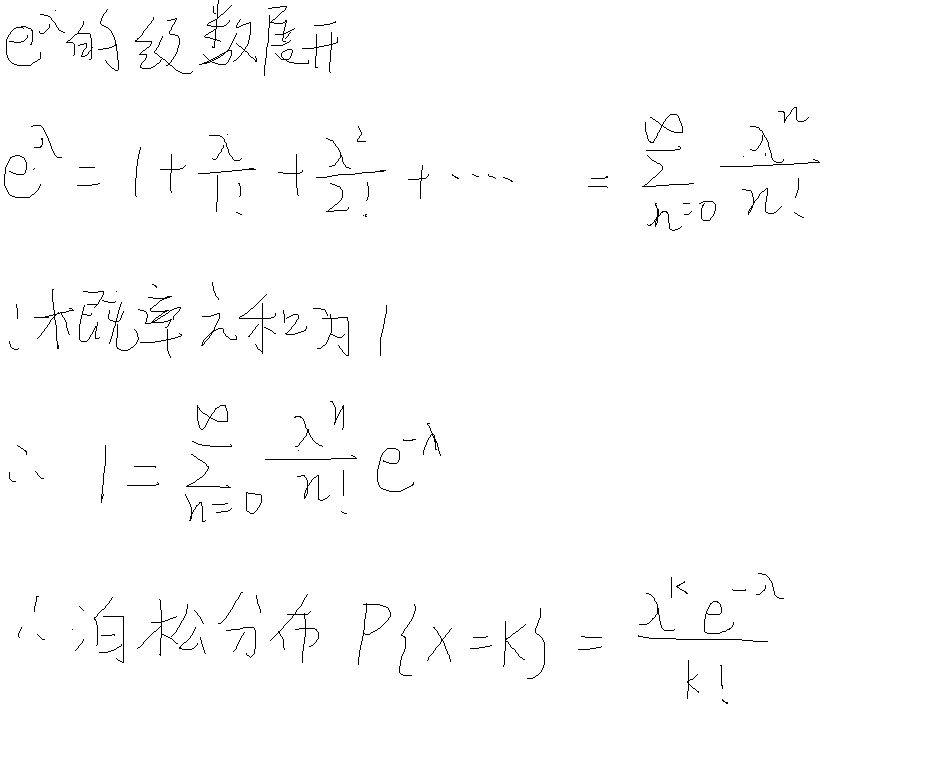 e^λ的级数展开
e^λ = 1 + λ/1! + λ²/2! + ···· = ∑_{n=0}^{∞} λ^n/n!
∵概率之和为1
∴ 1 = ∑_{n=0}^{∞} λ^n/n! e^{-λ}
∴泊松分布 P{X=K} = λ^k e^{-λ}/k!